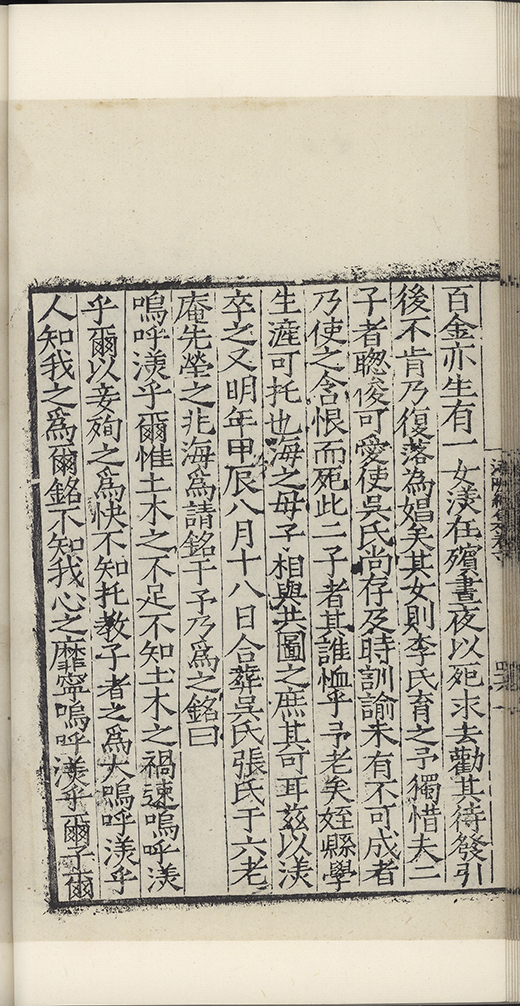 百金亦生有一女渼在殯晝夜以死求去勸其待發引
後不肯乃復落為娼矣其女則李氏育之予獨惜夫二
子者聰俊可愛使吳氏尚存及時訓諭未有不可成者
乃使之含恨而死此二子者其誰恤乎予老矣姪縣學
生漄可托也海之母子相與共圖之庶其可耳茲以渼
卒之又明年甲辰八月十八日合葬吳氏張氏于六老
庵先塋之兆海為請銘于予乃為之銘曰
嗚呼渼乎爾惟土木之不足不知土木之禍速嗚呼渼
乎爾以妾殉之為快不知托教子者之為大嗚呼渼乎
人知我之為爾銘不知我心之靡寧嗚呼渼乎爾子爾